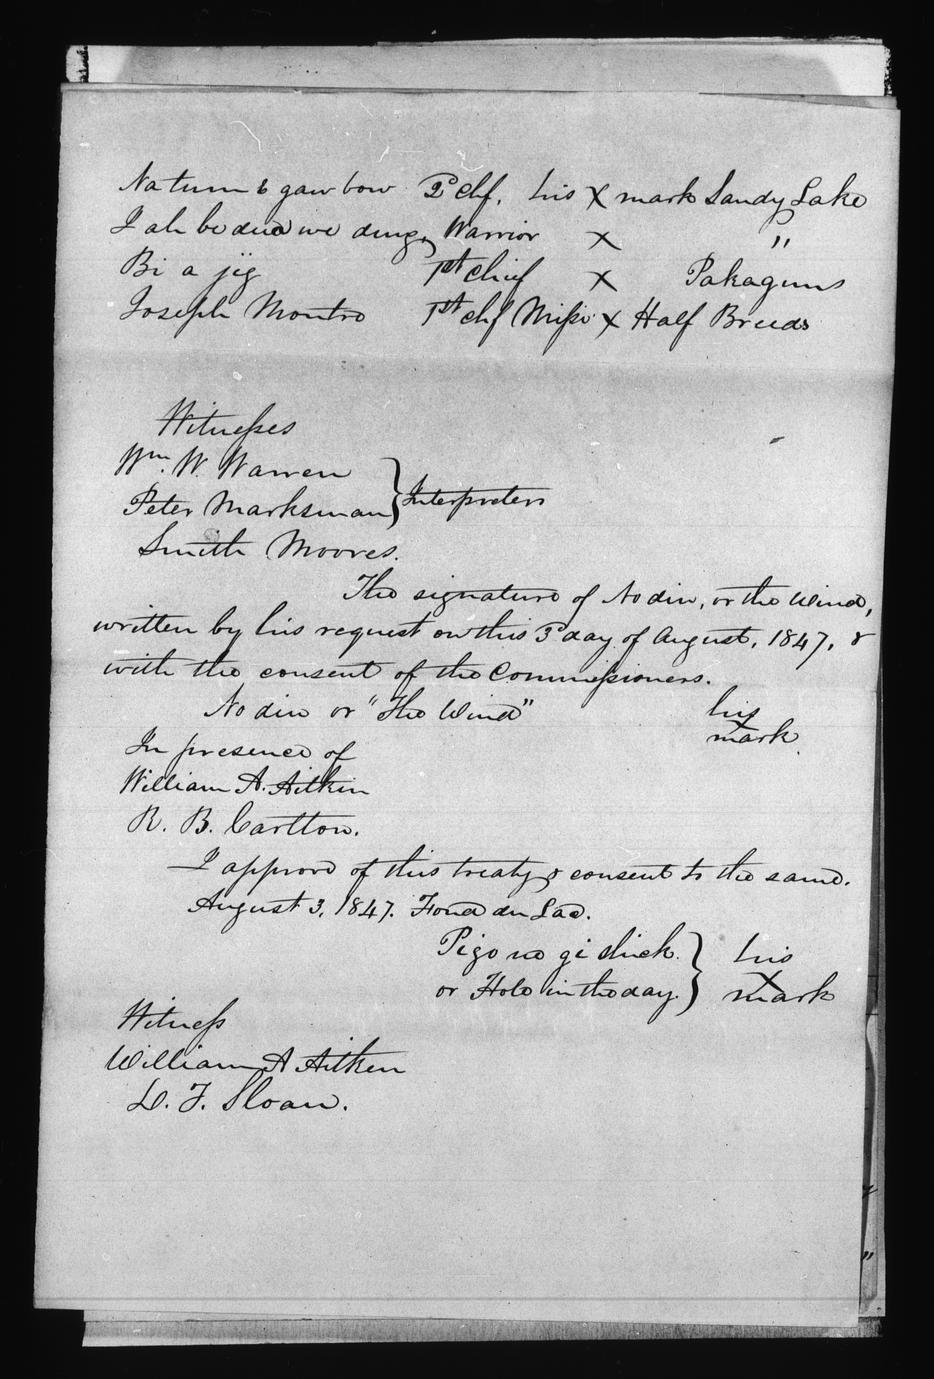 Natum e gaw bow 2d chf, his X mark Sandy Lake
I ah be dua we dung, Warrior X "
Bi a jig 1st chief X Pakagums
Joseph Montro 1st chf Missi. X Half Breeds
Witnesses
Wm. W. Warren
Peter Marksman } Interpreters
Smith Moores.
The signature of Nodin, or the Wind,
written by his request on this 3d day of August, 1847, &
with the consent of the Commissioners.
Nodin or "The Wind" his X mark
In presence of
William A. Aitkin
R. B. Carlton.
I approve of this treaty & consent to the same.
August 3, 1847. Fond du Lac.
Pigo na gi shick.
or Hole in the day. } his X mark
Witness
William A Aitken
D. T. Sloan.